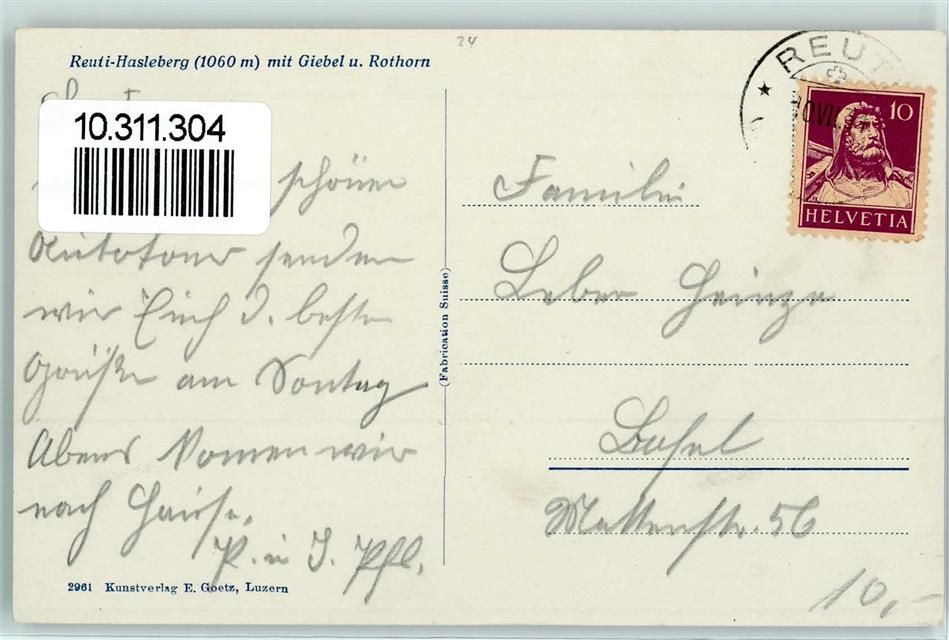 24
Reuti-Hasleberg (1060 m) mit Giebel u. Rothorn
10.311.304
schönen
Autotour senden
wir Euch d. beste
Grüße am Sontag
Abend komen wir
nach Hause.
P. u J. Pfl.
2961 Kunstverlag E. Goetz, Luzern
(Fabrication Suisse)
REUT
10
HELVETIA
Familie
Leber Heinze
Basel
Mattenstr. 56
10,-